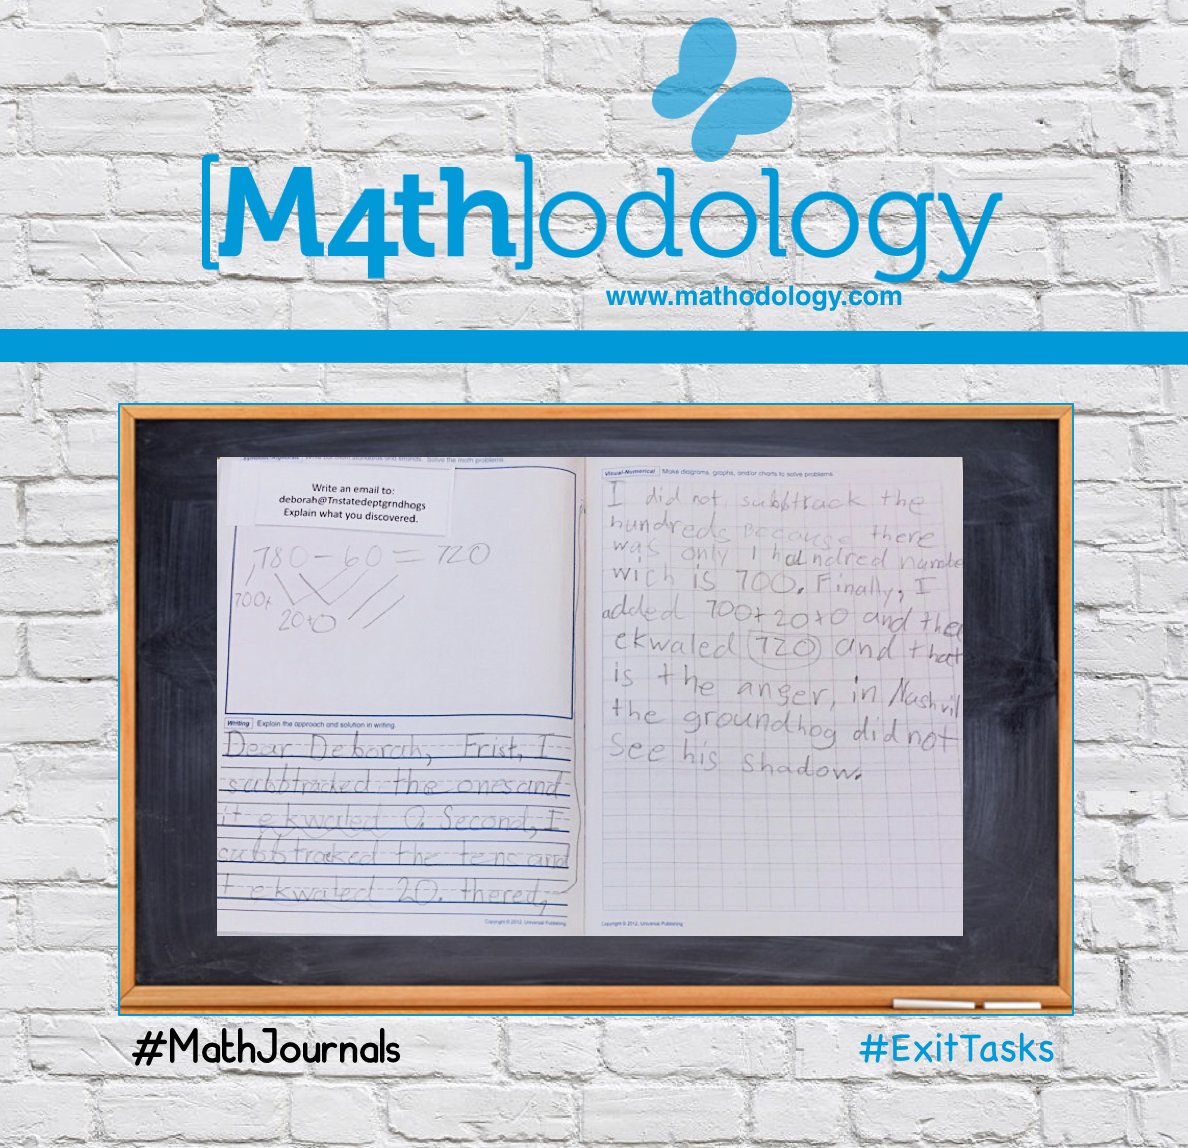 [M4th]odology
www.mathodology.com
Write an email to:
deborah@Tnstatedeptgrndhogs
Explain what you discovered.
780 - 60 = 720
700+
20+0
Writing Explain the approach and solution in writing.
Dear Deborah, Frist, I
subbtracked the ones and
it ekwaled 0. Second, I
subbtracked the tens and
t ekwaled 20. thered,
Copyright © 2012, Universal Publishing
Visual-Numerical Make diagrams, graphs, and/or charts to solve problems.
I did not subbtrack the
hundreds because there
was only 1 hundred numbe
wich is 700. Finally, I
added 700+20+0 and the
ekwaled 720 and that
is the anger, in Nashvil
the groundhog did not
see his shadow.
Copyright © 2012, Universal Publishing
#MathJournals
#ExitTasks